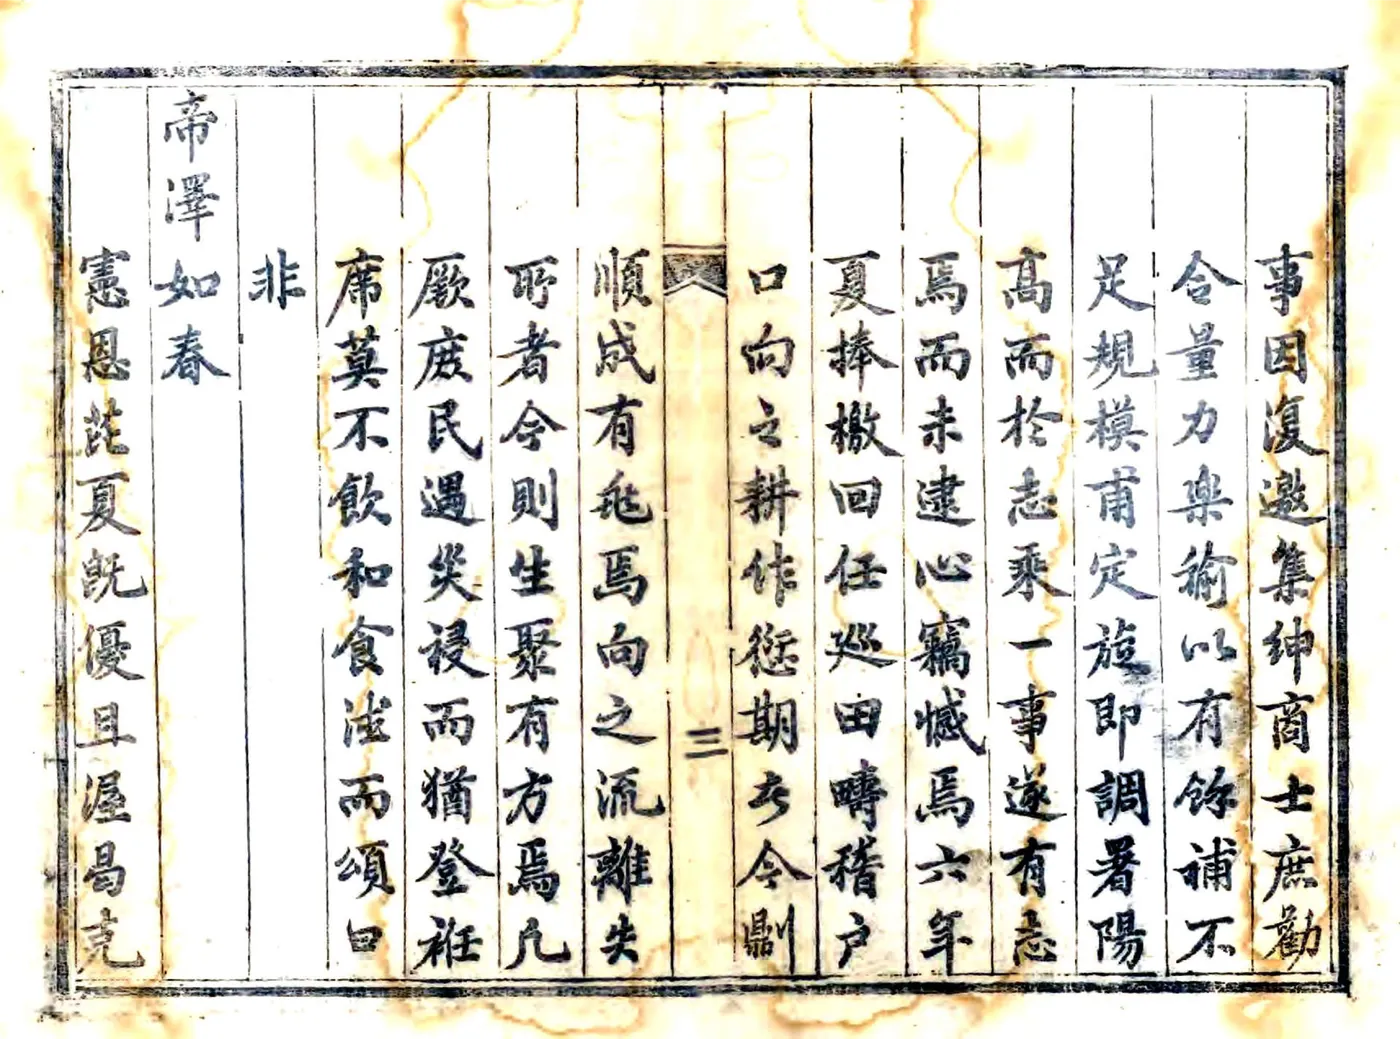 事因復邀集紳商士庶勸
令量力樂輸以有餘補不
足規模甫定旋即調署陽
高而於志乘一事遂有志
焉而未逮心竊憾焉六年
夏捧檄回任巡田疇稽户
口向之耕作愆期者今則
三
順成有兆焉向之流離失
所者今則生聚有方焉凡
厥庶民遇災祲而猶登衽
席莫不飲和食德而頌曰
非
帝澤如春
憲恩芘夏既優且渥曷克